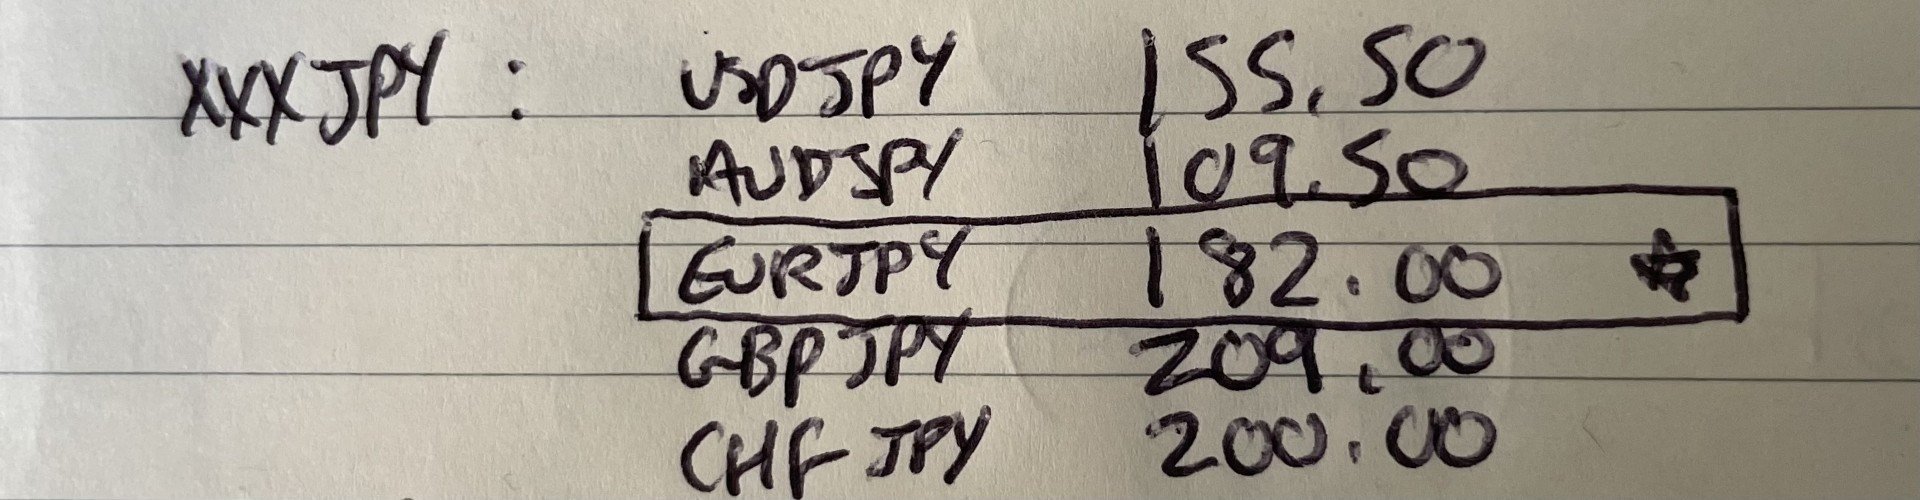 XXXJPY : USDJPY 155.50
AUDJPY 109.50
EURJPY 182.00
GBPJPY 209.00
CHFJPY 200.00